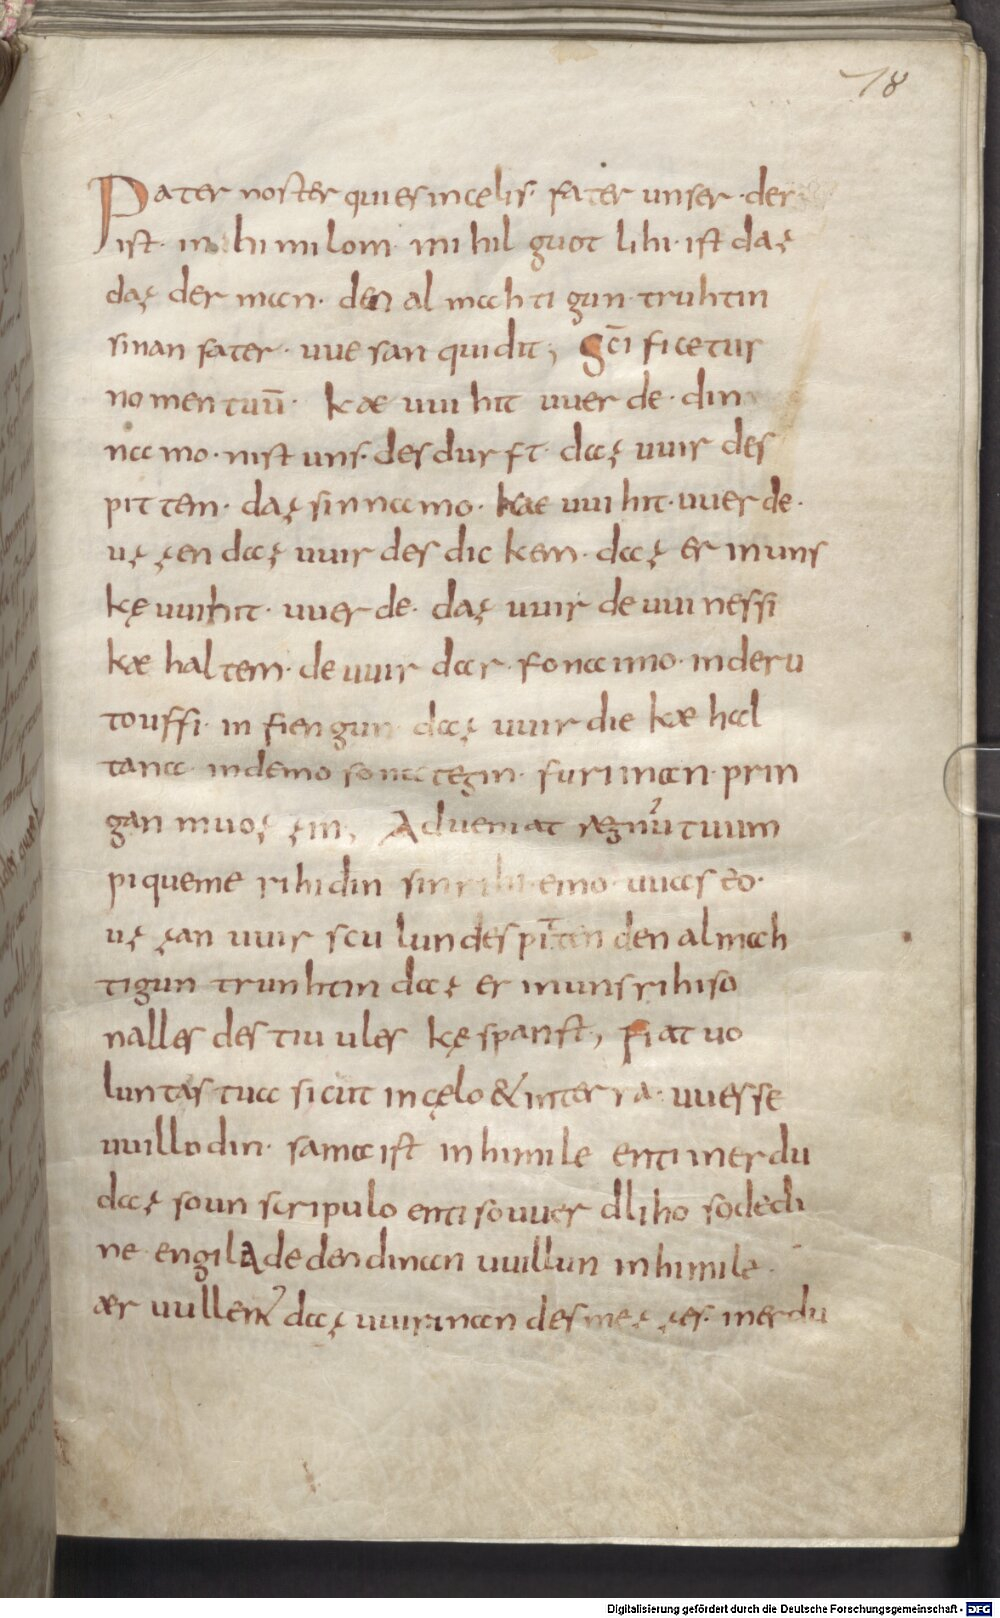 78
Pater noster qui es in celis· fater unser ·der
ist· in himilom· mihil guot lihi·ist daz
daz der man· den al mahti gun·truhtin
sinan fater· uue san quidit; Sc̄i ficetur
nomen tuū· kæ uui hit uuer de· din
namo·nist uns·des durft· daz uuir des
pit tem· daz sin namo· kae uui hit·uuer de·
uz zen daz uuir des dic kem· daz er in uns
kę uuihit· uuer de· daz uuir de uui nessi
kæ hal tem· de uuir dar· fona imo· in deru
touffi· in fien gun· daz uuir die kæ hal
tana· in demo sona tegin· furi inan·prin
gan muoz zin, Adueniat regnū tuum
piqueme rihi din sin rihi·emo uuas eo·
uz zan uuir scu lun des pitten den almah
tigun trunhtin daz er in uns rihiso
nalles des tiu ules kę spanst, fiat uo
luntas tua sicut in cęlo & in ter ra· uuesse
uuillo din· sama ist in himile enti in er du
daz so un scripulo enti so uuer dliho so de di
ne engila de den dinan uuillun in himile·
ær uullent daz uuir inan des mez zes· in er du
Digitalisierung gefördert durch die Deutsche Forschungsgemeinschaft - DFG